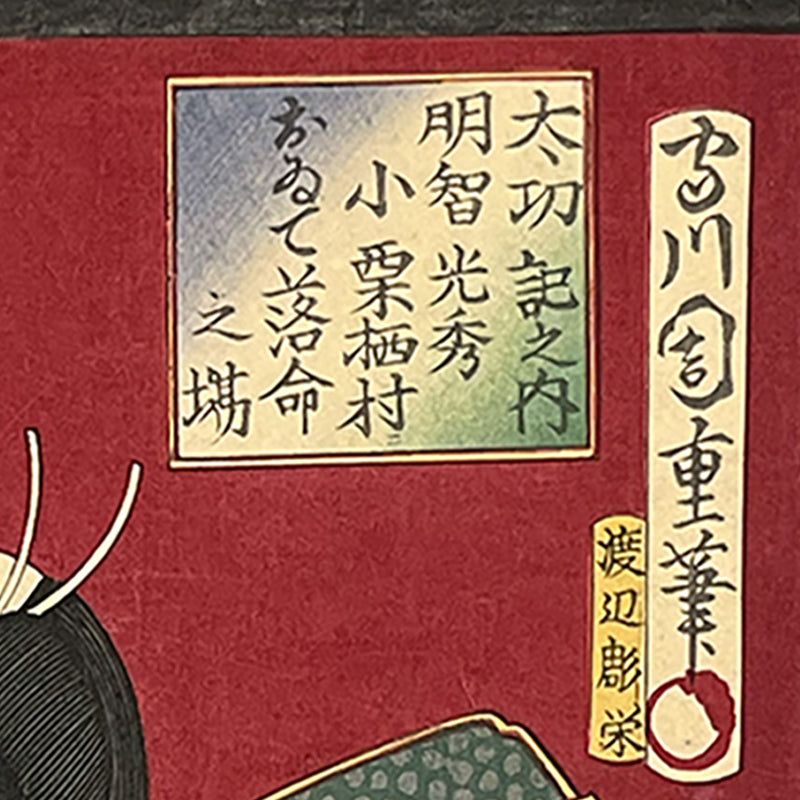 太功記之内
明智光秀
小栗栖村
おゐて落命
之場
守川周重筆
渡辺彫栄